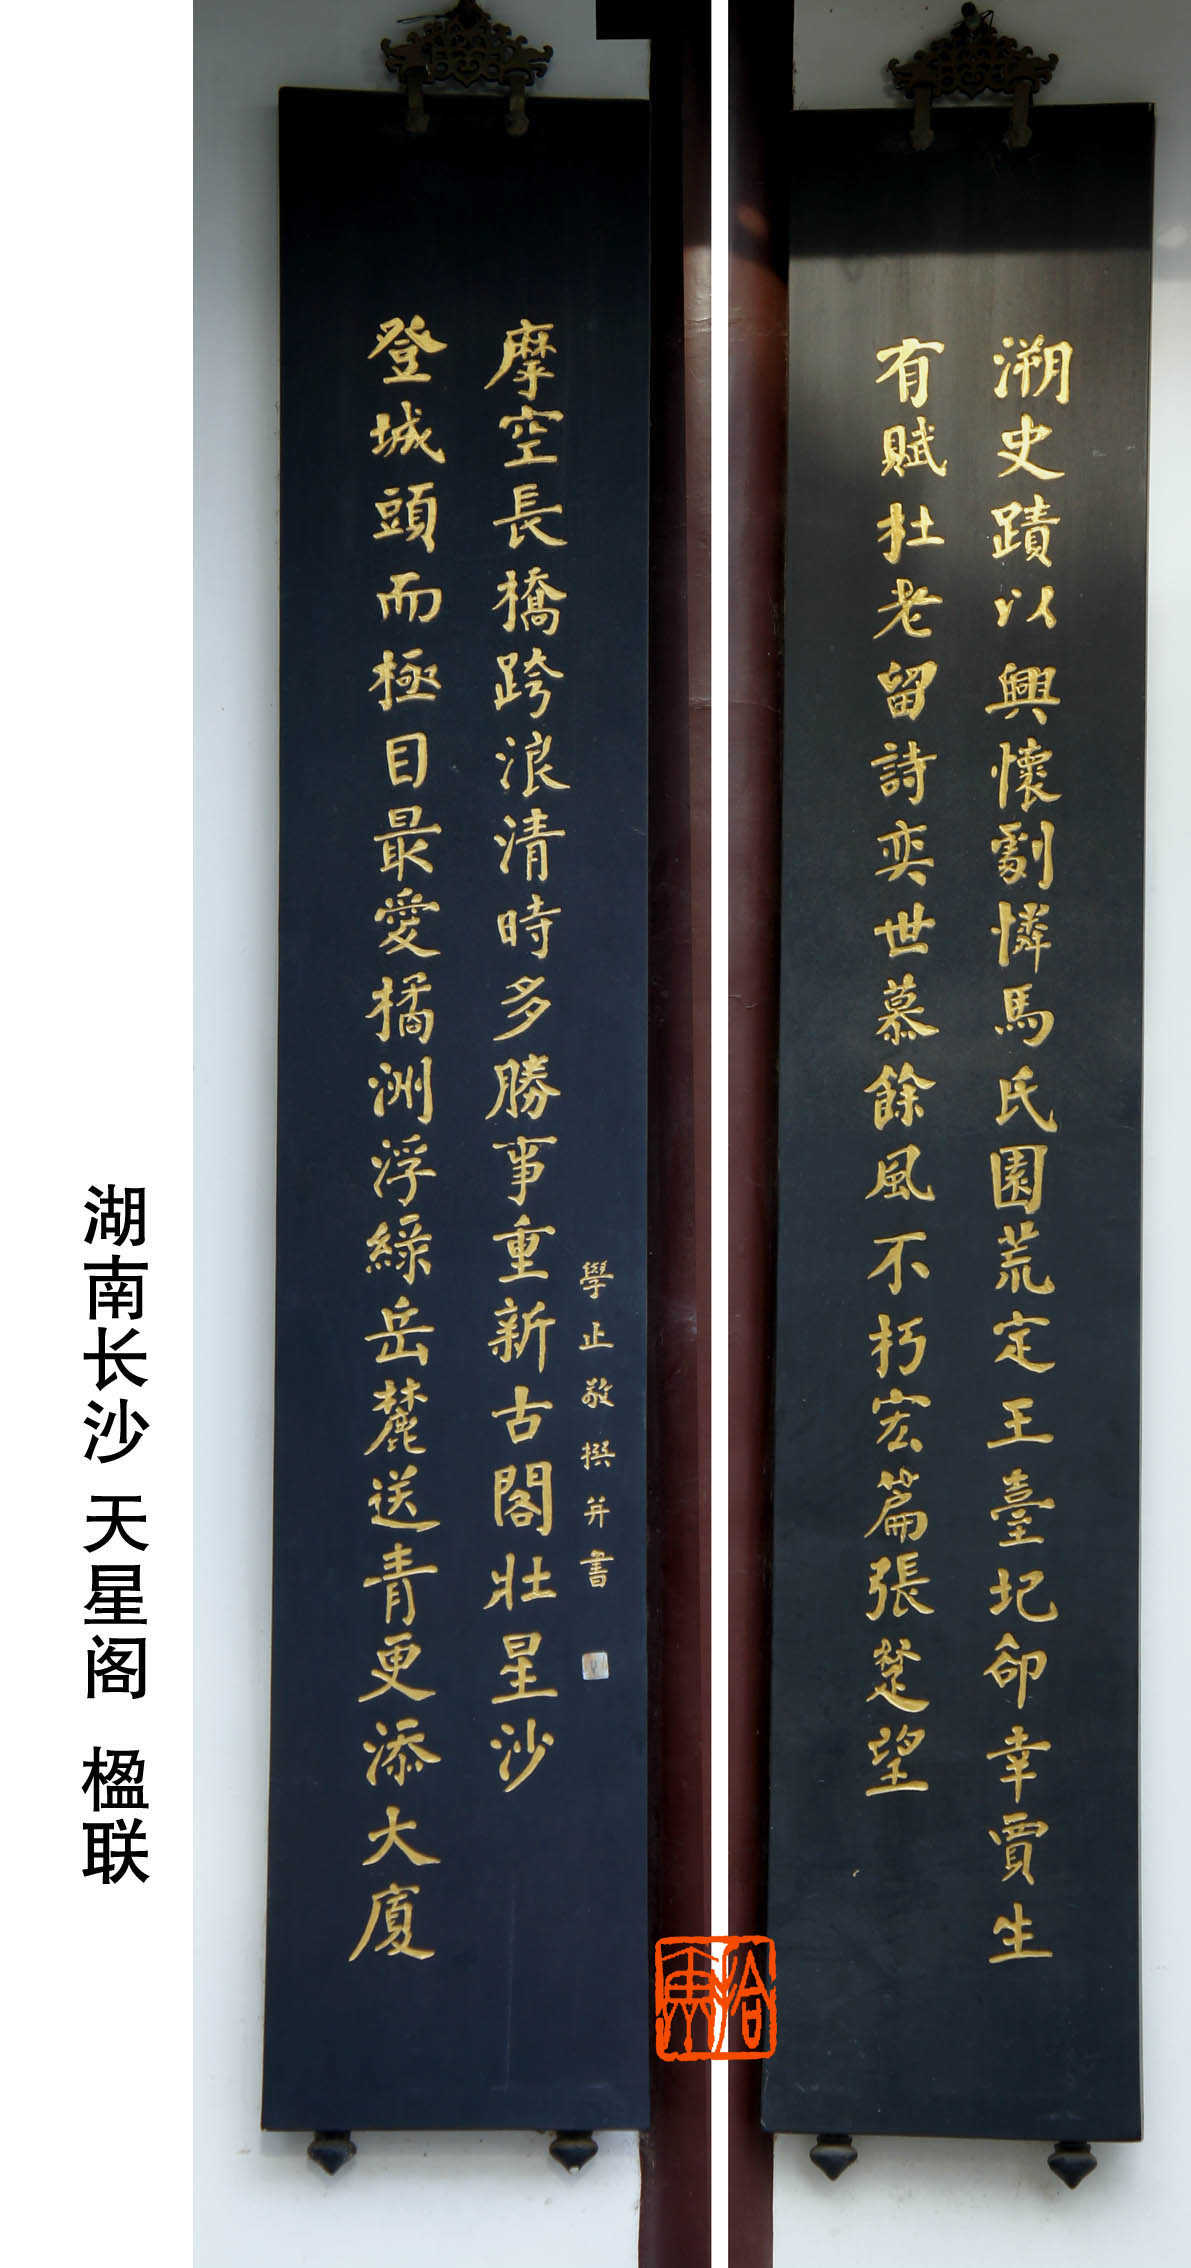 溯史蹟以興懷劇憐馬氏園荒定王臺圮卻幸賈生
有賦杜老留詩奕世慕餘風不朽宏篇張楚望
登城頭而極目最愛橘洲浮綠岳麓送青更添大廈
摩空長橋跨浪清時多勝事重新古閣壯星沙
學止敬撰并書
湖南长沙 天星阁 楹联